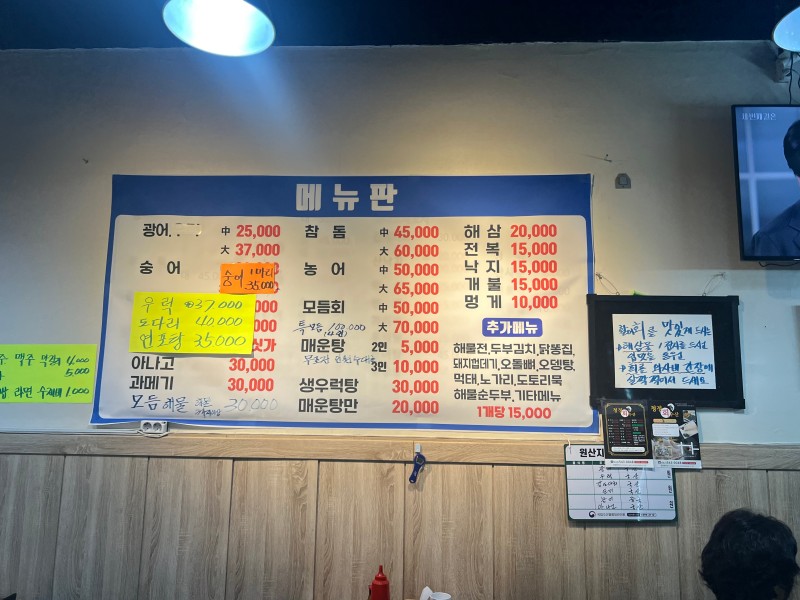 메뉴판
광어 中 25,000
大 37,000
숭어
숭어 1마리
35,000
우럭 37,000
도다리 40,000
연포탕 35,000
싯가
아나고 30,000
과메기 30,000
모듬해물 30,000
참돔 中 45,000
大 60,000
농어 中 50,000
大 65,000
모듬회 中 50,000
大 70,000
100,000
매운탕 2인 5,000
3인 10,000
생우럭탕 30,000
매운탕만 20,000
해삼 20,000
전복 15,000
낙지 15,000
개불 15,000
멍게 10,000
추가메뉴
해물전,두부김치,닭똥집,
돼지껍데기,오돌뼈,오뎅탕,
먹태,노가리,도토리묵
해물순두부,기타메뉴
1개당 15,000
주 맥주 4,000
5,000
라면 1,000
맛있게 드시는
원산지
세번째 결혼